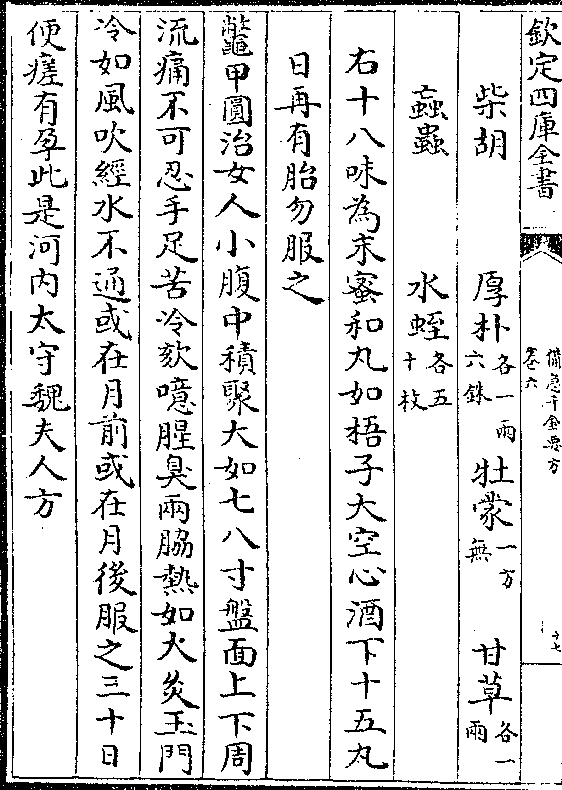 欽定四庫全書
備急千金要方
卷六
十七
柴胡 厚朴各一兩六銖 牡蒙一方無 甘草各一兩
蝱蟲 水蛭各五十枚
右十八味為末蜜和丸如梧子大空心酒下十五丸
日再有胎勿服之
鼈甲圓治女人小腹中積聚大如七八寸盤面上下周
流痛不可忍手足苦冷欬噫腥臭兩脇熱如火炙玉門
冷如風吹經水不通或在月前或在月後服之三十日
便瘥有孕此是河內太守魏夫人方